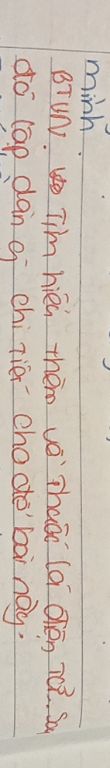 mình
BTVN: Tìm hiểu thêm về thuốc lá điện tử. Sau
đó lập dàn ý chi tiết cho đề bài này.